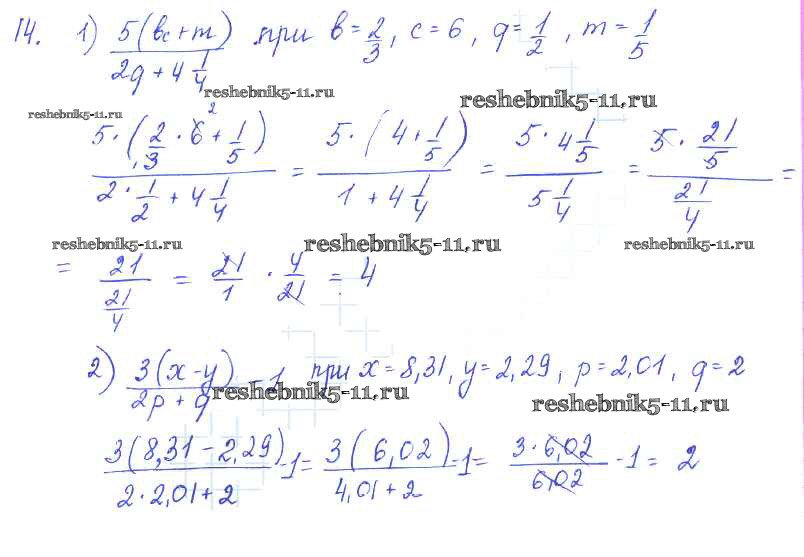 14. 1) 5(вc+m) / 2q+4 1/4 при в=2/3, c=6, q=1/2, m=1/5
reshebnik5-11.ru
reshebnik5-11.ru
reshebnik5-11.ru
5·(2/3·6+1/5) / 2·1/2+4 1/4 = 5·(4+1/5) / 1+4 1/4 = 5·4 1/5 / 5 1/4 = 5·21/5 / 21/4 =
reshebnik5-11.ru
reshebnik5-11.ru
reshebnik5-11.ru
= 21 / 21/4 = 21/1 · 4/21 = 4
2) 3(x-y) / 2p+q -1 при x=8,31, y=2,29, p=2,01, q=2
reshebnik5-11.ru
reshebnik5-11.ru
3(8,31-2,29) / 2·2,01+2 -1= 3(6,02) / 4,01+2 -1= 3·6,02 / 6,02 -1= 2